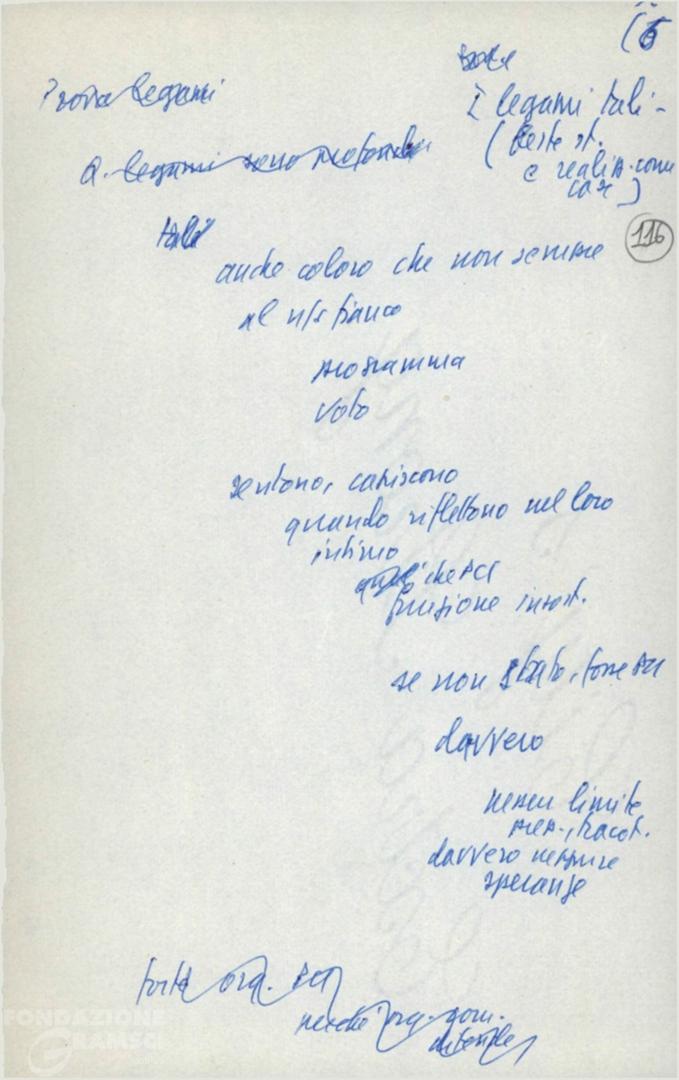 (6
Prova legami
I legami tali -
(feste st.
e realizz. comu
Q. legami sono profondi
tali
116
anche coloro che non sempre
al n/s fianco
programma
voto
sentono, capiscono
quando riflettono nel loro
intimo
che PCI
funzione insost.
se non stato, forse PCI
davvero
nessun limite
prep., tracot.
davvero neppure
speranze
forza org. PCI
perché org. pom.
difende
FONDAZIONE
GRAMSCI